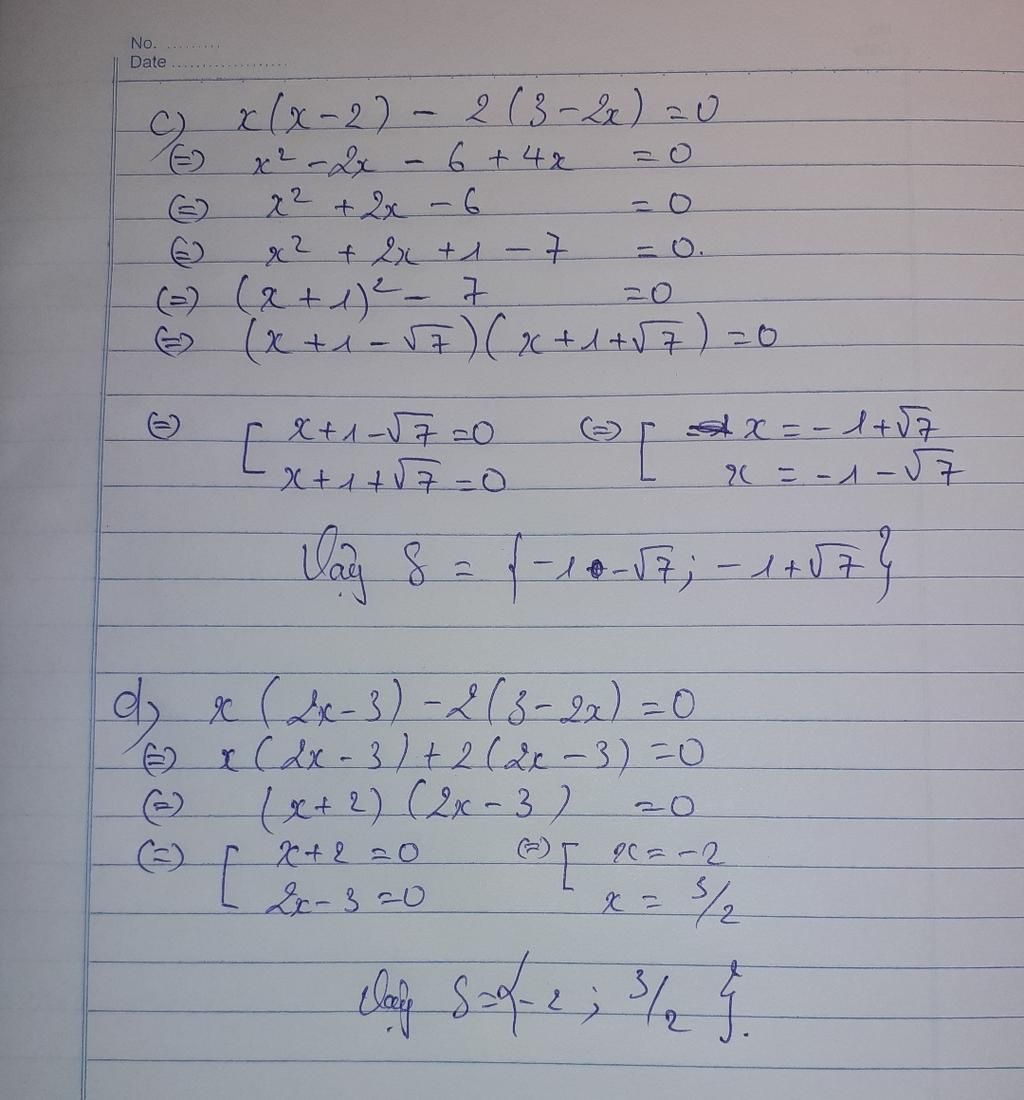 No. .........
Date ...................
c) x(x-2) - 2(3-2x) =0
(=) x² -2x - 6 + 4x =0
(=) x² +2x -6 =0
(=) x² + 2x +1 - 7 =0.
(=) (x+1)² - 7 =0
(=) (x+1-√7)(x+1+√7)=0
(=) [ x+1-√7=0 (=) [ x = -1+√7
x+1+√7=0 x = -1-√7
Vậy S = {-1-√7; -1+√7}
d) x(2x-3) -2(3-2x) =0
(=) x(2x-3)+2(2x-3)=0
(=) (x+2)(2x-3) =0
(=) [ x+2=0 (=) [ x=-2
2x-3=0 x = 3/2
Vậy S={-2; 3/2}.